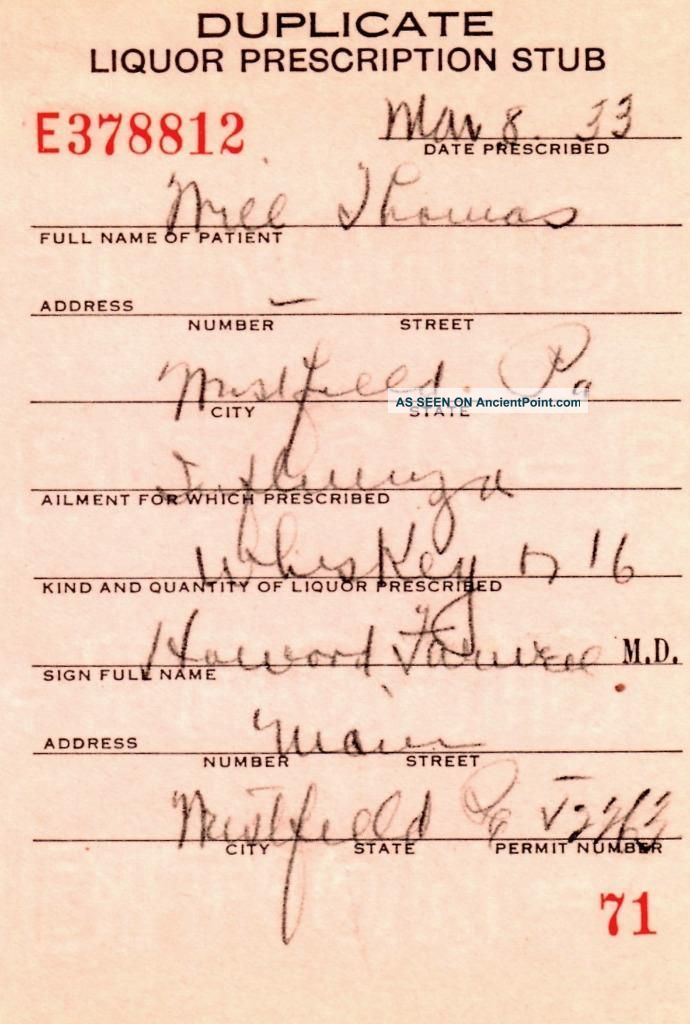 DUPLICATE
LIQUOR PRESCRIPTION STUB
E378812
Mar 8. 33
DATE PRESCRIBED
Will Thomas
FULL NAME OF PATIENT
ADDRESS
NUMBER STREET
Westfield. Pa
AS SEEN ON AncientPoint.com
CITY STATE
Influenza
AILMENT FOR WHICH PRESCRIBED
Whiskey 16
KIND AND QUANTITY OF LIQUOR PRESCRIBED
Howard M.D.
SIGN FULL NAME
Main
ADDRESS
NUMBER STREET
Westfield Pa
CITY STATE PERMIT NUMBER
71